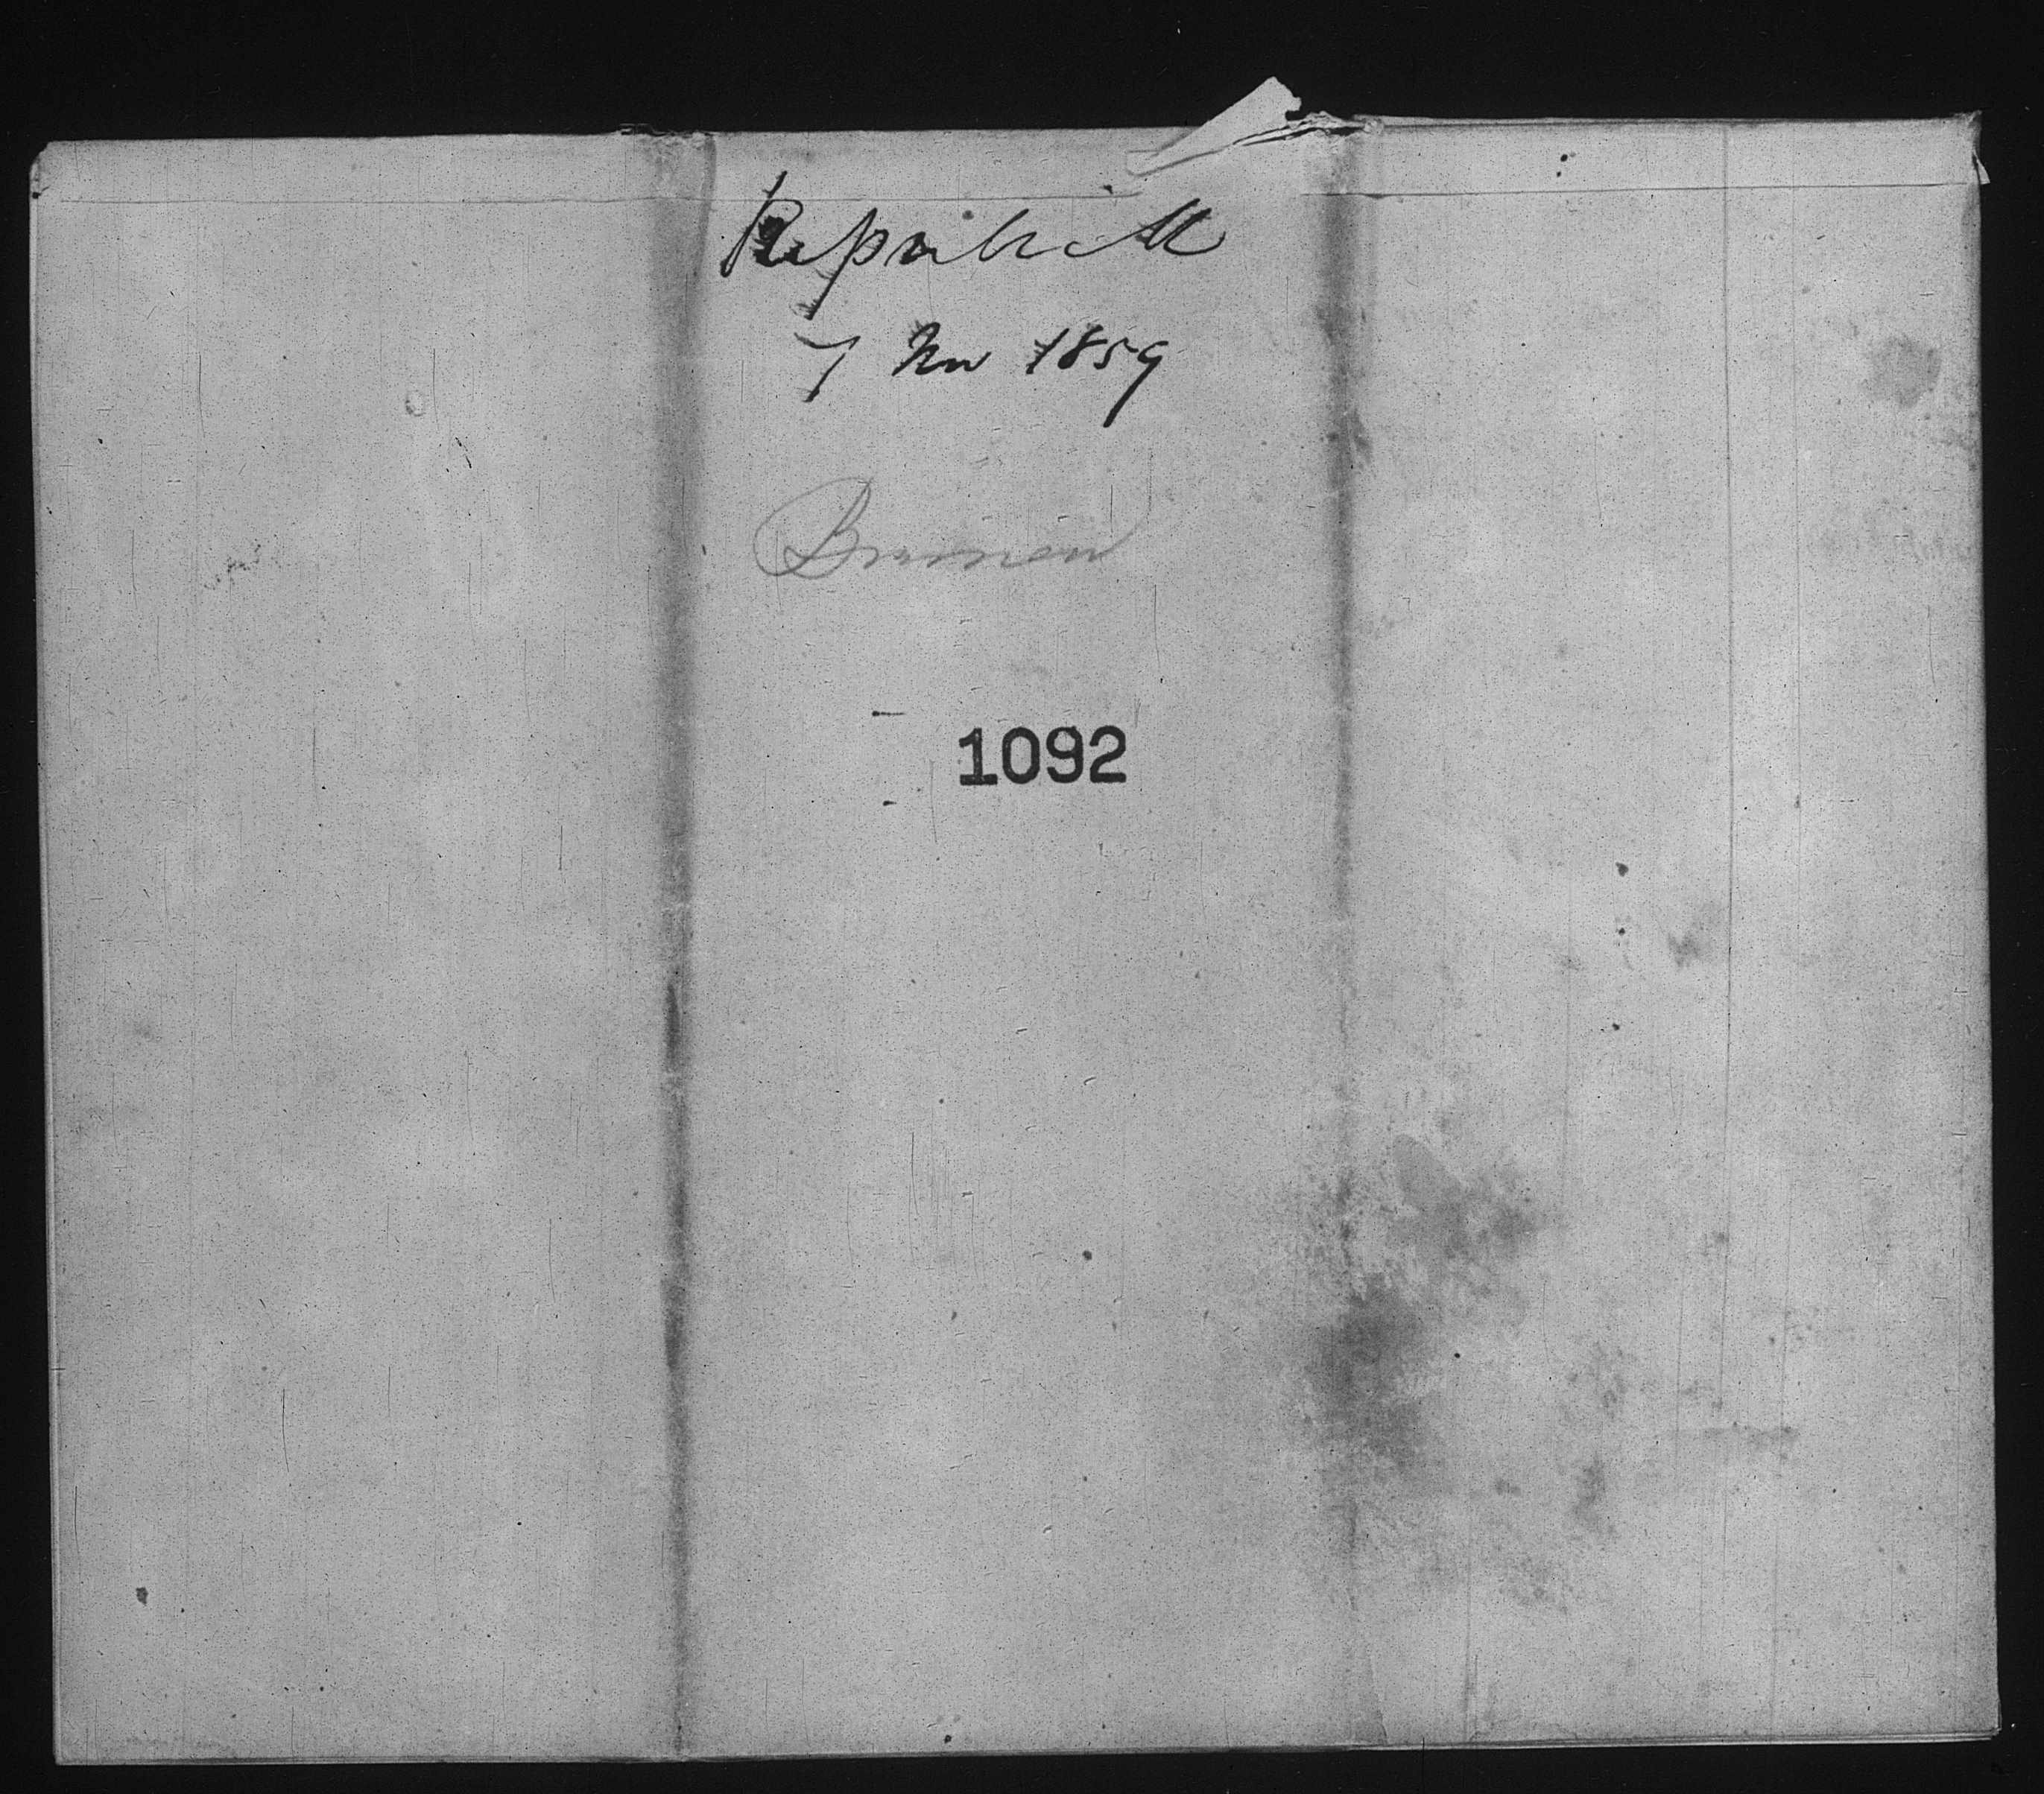 Republik
7 Nov 1859
Bremen
1092